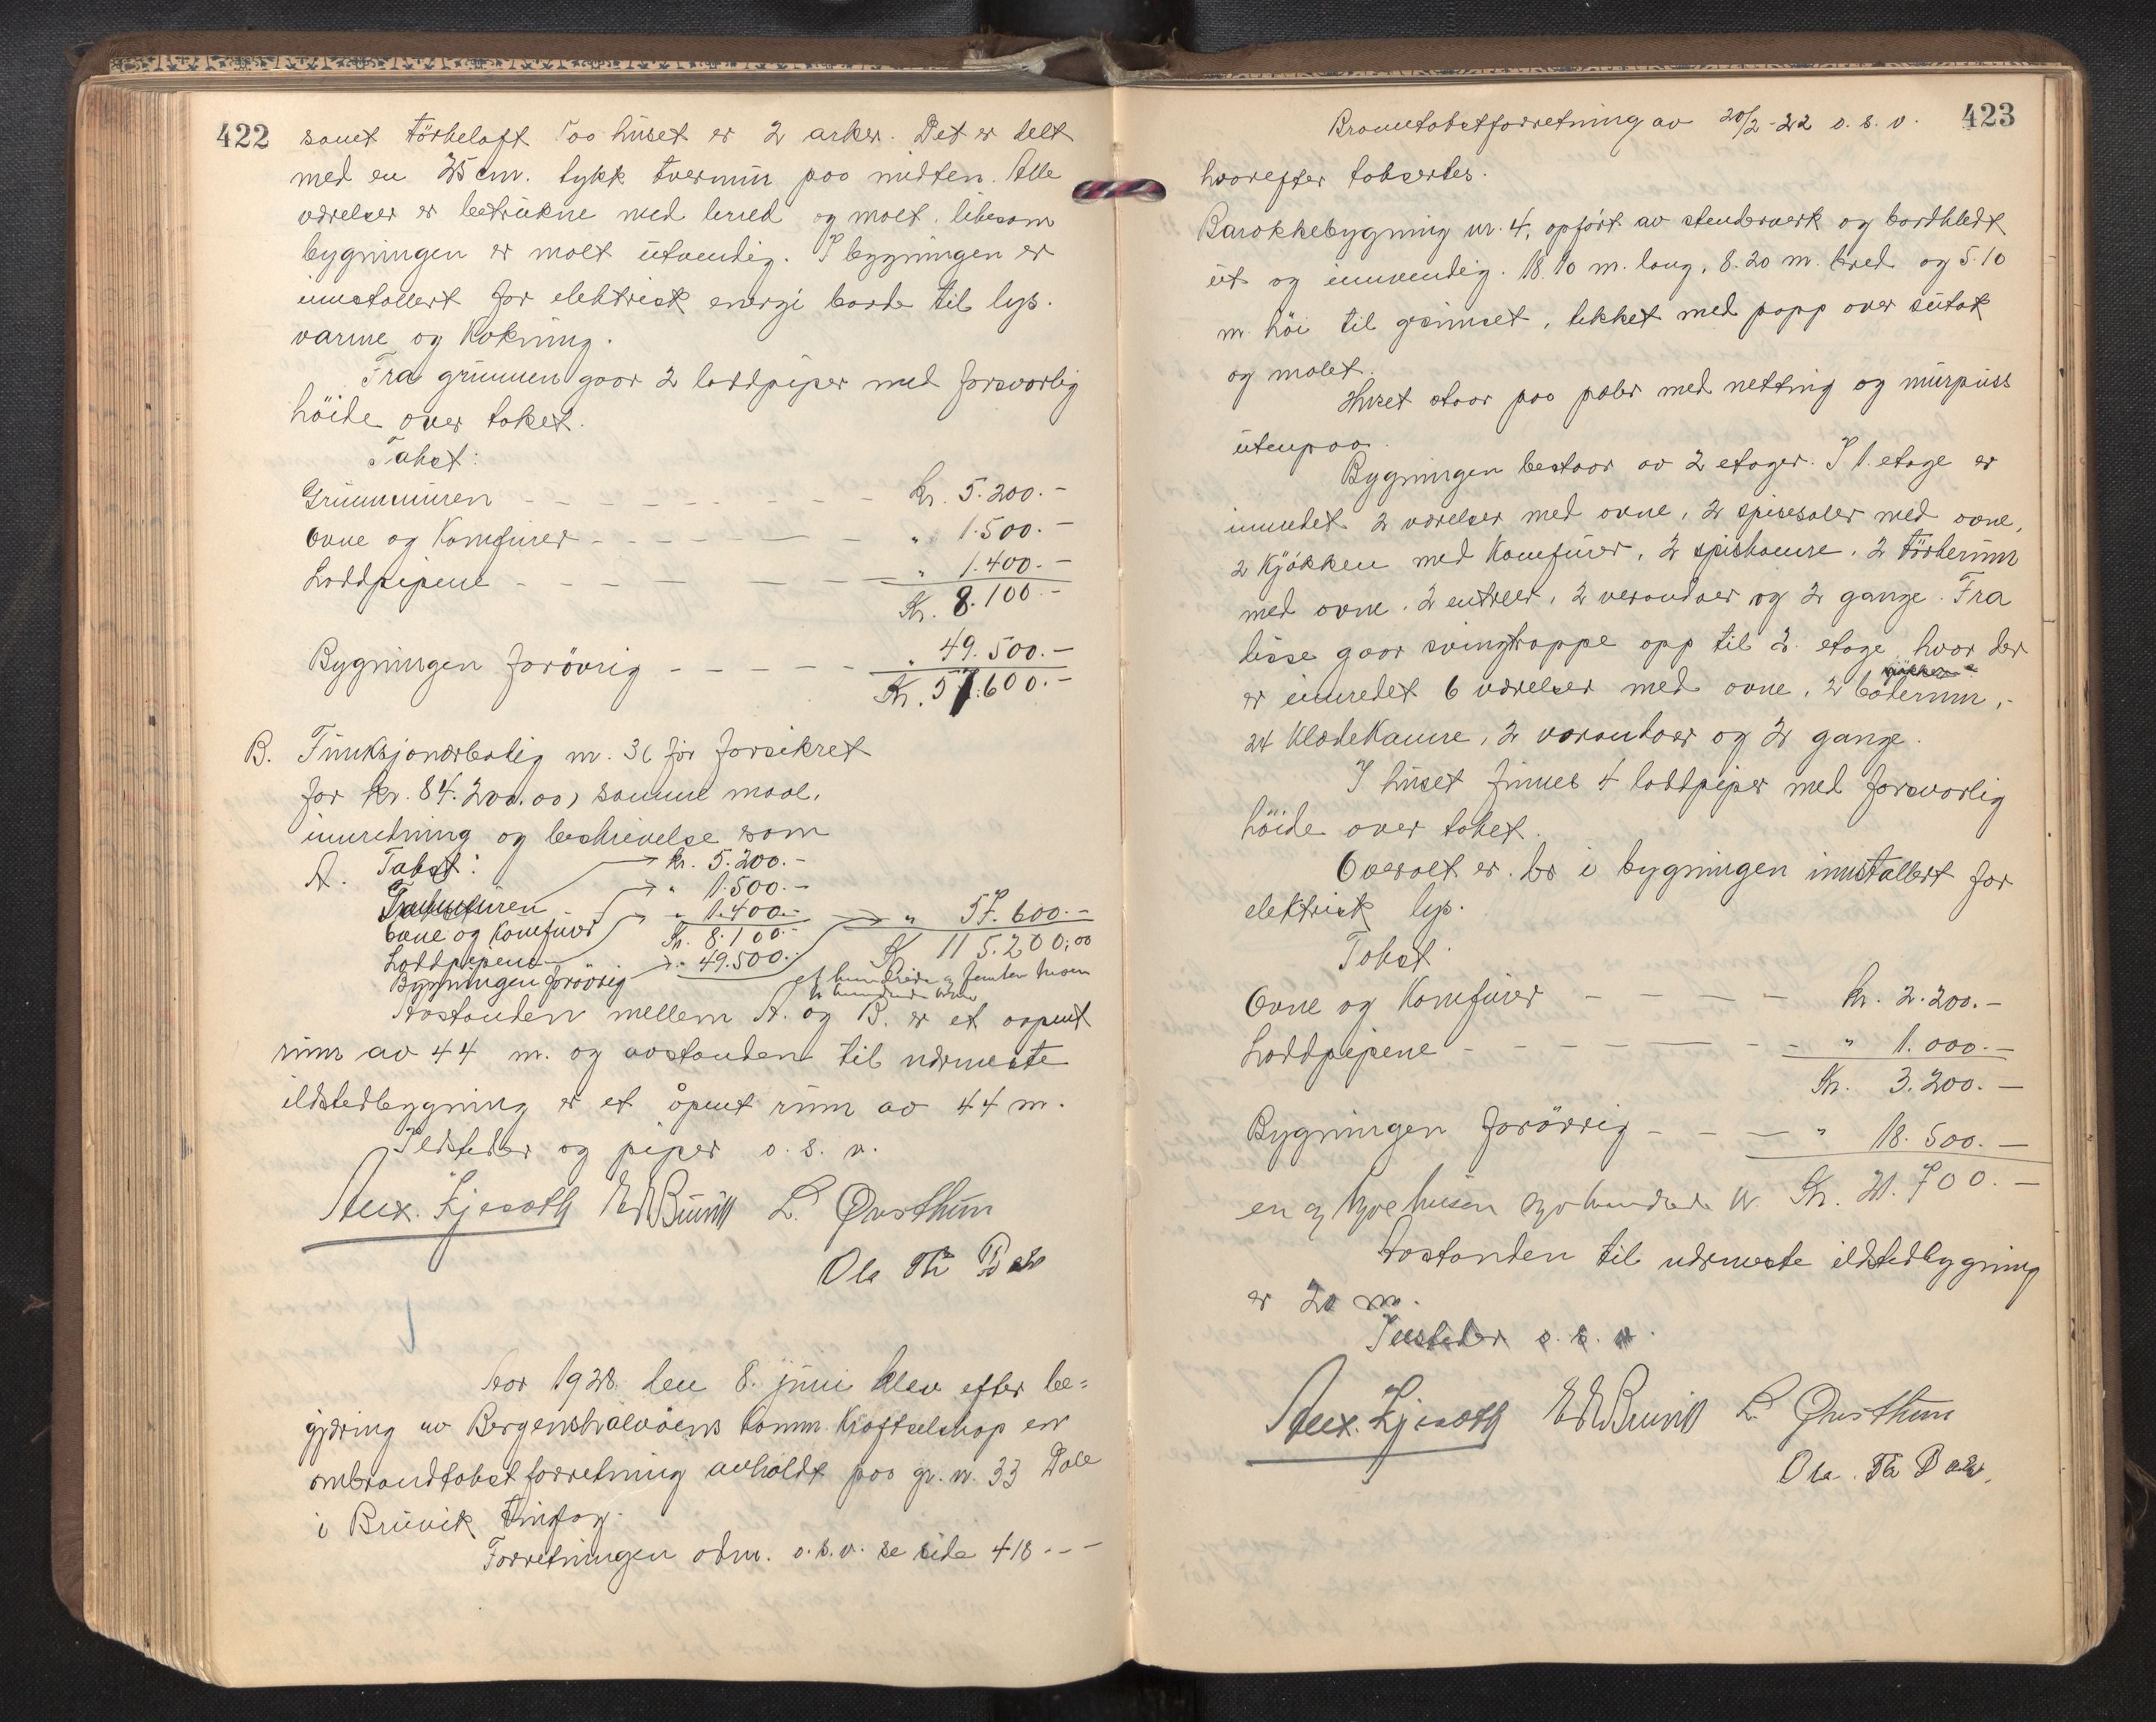 422
samt törkeloft Paa huset er 2 arker. Det er delt
med en 25 cm. tykk tvermur paa midten. Alle
værelser er betrukne med lerred og malt, likesom
bygningen er malt utvendig. I bygningen er
innstallert for elektrisk energi baade til lys.
varme og Kokning.
Fra grunnen gaar 2 loddpiper med forsvarlig
höide over taket.
Takst:
Grunnmuren - - - - - - - - - kr. 5.200.-
Ovne og Komfurer - - - - - - - " 1.500.-
Loddpipene - - - - - - - - " 1.400.-
Kr. 8.100.-
Bygningen forövrig - - - - - " 49.500.-
Kr. 57.600.-
B. Funksjonærbolig nr. 3 (för forsikret
for kr. 84.200.00) samme maal,
innredning og beskrivelse som
A. Takst:
Grunnmuren kr. 5.200.-
Ovne og Komfurer " 1.500.-
Loddpipene " 1.400.-
Kr. 8.100.-
Bygningen forövrig " 49.500.- " 57.600.-
K 115.200,00
et hundrede og femten tusen
to hundrede kron
Avstanden mellem A. og B. er et aapent
rum av 44 m. og avstanden til nærmeste
ildstedbygning er et åpent rum av 44 m.
Ildsteder og piper o. s. v.
Aux. Ljosoth E Bruvik L. Øvsthun
Ola Th Dale
Aar 1928 den 8. juni blev efter be=
gjæring av Bergenshalvöens komm. Kraftselskap en
ombrandtakstforretning avholdt paa gr. nr. 33 Dale
i Bruvik tinglag.
Forretningen adm. o.s.v. se side 418 - - -
423
Branntakstforretning av 20/2-22 o. s. v.
hvorefter takseres.
Barakkebygning nr. 4, opfört av stenderverk og bordkledt
ut og innvendig. 18.10 m. lang, 8.20 m. bred og 5.10
m. höi til gesimset, tekket med papp over sutak
og malet.
Huset staar paa pæler med netting og murpuss
utenpaa.
Bygningen bestaar av 2 etager. I 1. etage er
innredet 2 værelser med ovne, 2 spisesaler med ovne,
2 Kjökken med Komfurer, 2 spiskamre, 2 törkerum
med ovne, 2 entreer, 2 verandaer og 2 gange. Fra
disse gaar svingtrappe opp til 2. etage hvor der
er innredet 6 værelser med ovne, 2 baderum,
24 Klædekamre, 2 varandaer og 2 gange.
I huset finnes 4 loddpiper med forsvarlig
höide over taket.
Overalt er der i bygningen innstallert for
elektrisk lys.
Takst:
Ovne og Komfurer - - - - - kr. 2.200.-
Loddpipene - - - - - - - " 1.000.-
Kr. 3.200.-
Bygningen forövrig - - - - " 18.500.-
en og tyve tusen syv hundrede kr Kr. 21.700.-
Avstanden til nærmeste ildstedbygning
er 20 m.
Ildsteder o. s. v.
Aux. Ljosoth E Bruvik L. Øvsthun
Ola. Th Dale.